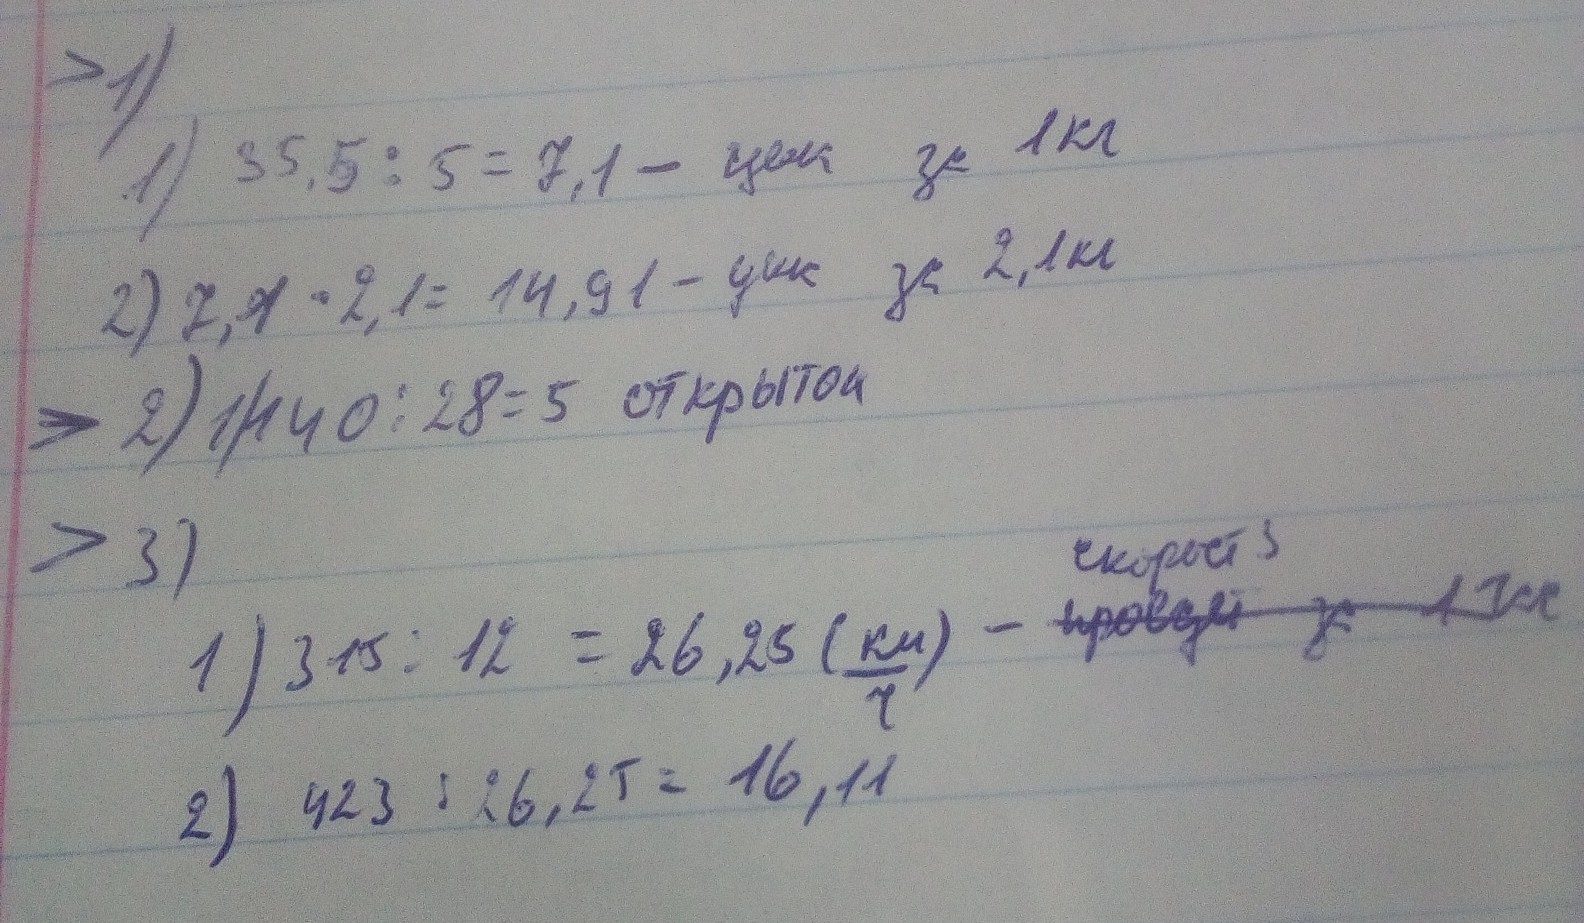 >1)
1) 35,5 : 5 = 7,1 - цена за 1кг
2) 7,1 · 2,1 = 14,91 - цена за 2,1кг
> 2) 1) 140 : 28 = 5 открыток
> 3)
скорость
1) 315 : 12 = 26,25 (км/ч) - проедет за 1 час
2) 423 : 26,25 = 16,11